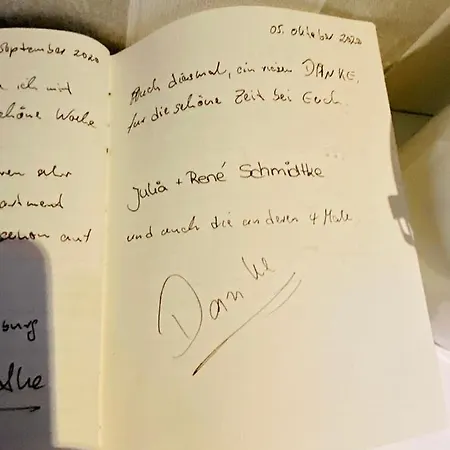 September 2020
ich mit
schöne Woche
sehr
schon auf
burg
05. Oktober 2020
Auch diesmal, ein riesen DANKE,
für die schöne Zeit bei Euch.
Julia + René Schmidtke
und auch die anderen 4 Male
Danke